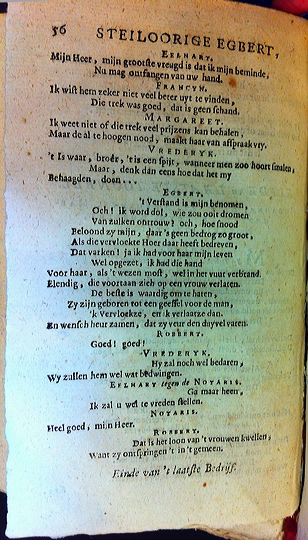 56 STEILOORIGE EGBERT,
EELHART.
Mijn Heer, mijn grootste vreugd is dat ik mijn beminde,
Nu mag ontfangen van uw hand.
FRANCYN.
Ik wist hem zeker niet veel beter uyt te vinden,
Die trek was goed, dat is geen schand.
MARGREET.
Ik weet niet of die trek veel prijzens kan behalen,
Maar de al te hoogen nood, maakt haar van afspraak vry.
VREDERYK.
't Is waar, broêr, 't is een spijt, wanneer men zoo hoort smalen,
Maar, denk dan eens hoe dat het my
Behaagden, doen...
EGBERT.
't Verstand is mijn benomen,
Och! ik word dol, wie zou ooit dromen
Van zulken ontrouw? och, hoe snood
Beloond zy mijn, daar 's geen bedrog zo groot,
Als die vervloekte Hoer daar heeft bedreven,
Dat varken! ja ik had voor haar mijn leven
Wel opgezet, ik had die hand
Voor haar, als 't wezen most, wel in het vuur verbrand.
Elendig, die voortaan zich op een vrouw verlaten.
De beste is waardig om te haten,
Zy zijn geboren tot een geessel voor de man,
'k Vervloekze, en ik verlaatze dan.
En wensch heur zamen, dat zy veur den duyvel varen.
ROBBERT.
Goed! goed!
VREDERYK.
Hy zal noch wel bedaren,
Wy zullen hem wel wat bedwingen.
EELHART tegen de NOTARIS.
Ga maar heen,
Ik zal u wel te vreden stellen.
NOTARIS.
Heel goed, mijn Heer.
ROBBERT.
Dat is het loon van 't vrouwen kwellen,
Want zy ontspringen 't in 't gemeen.
Einde van 't laatste Bedrijf.